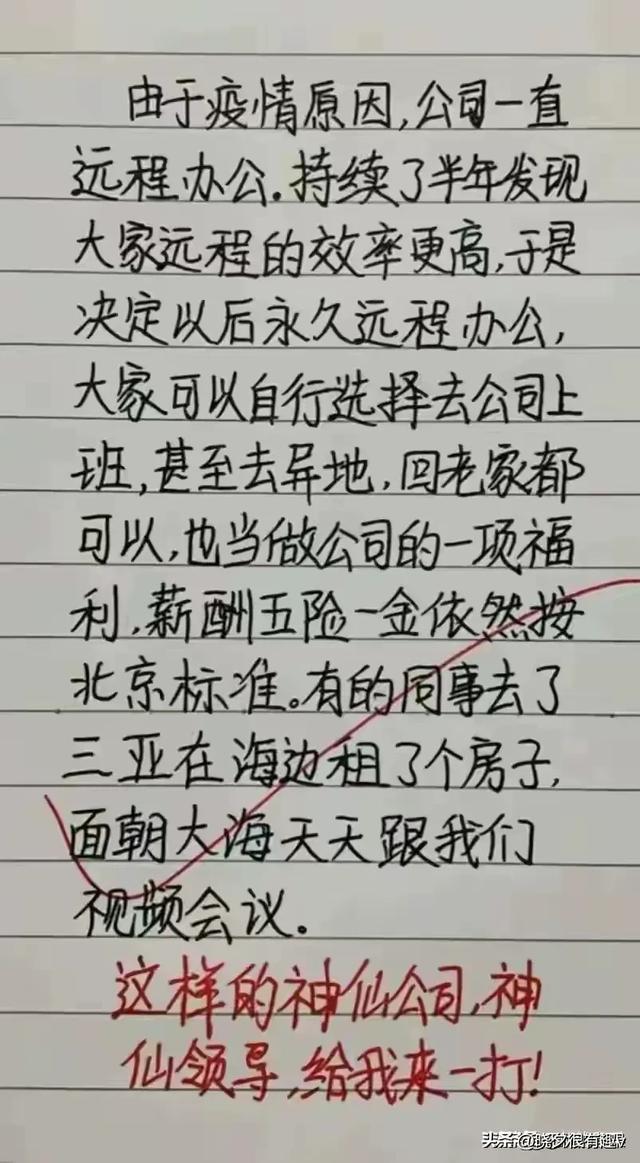 由于疫情原因,公司一直
远程办公.持续了半年发现
大家远程的效率更高,于是
决定以后永久远程办公,
大家可以自行选择去公司上
班,甚至去异地,回老家都
可以,也当做公司的一项福
利,薪酬五险一金依然按
北京标准。有的同事去了
三亚在海边租了个房子,
面朝大海天天跟我们
视频会议。
这样的神仙公司,神
仙领导,给我来一打!
头条@晓艾很有趣